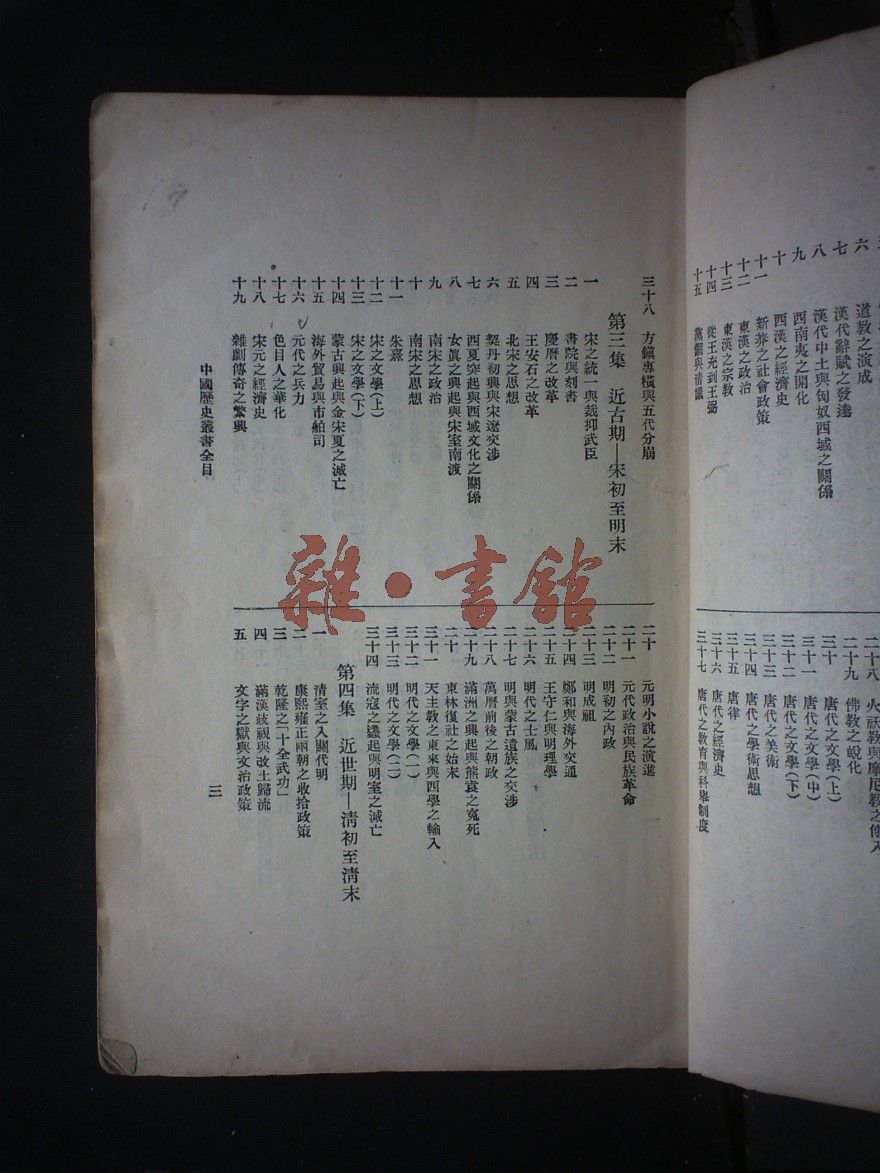 六 道教之演成
七 漢代辭賦之發達
八 漢代中土與匈奴西域之關係
九 西南夷之開化
十 西漢之經濟史
十一 新莽之社會政策
十二 東漢之政治
十三 東漢之宗教
十四 從王充到王弼
十五 黨錮與清議
二十八 火祆教與摩尼教之傳入
二十九 佛教之蛻化
三十 唐代之文學(上)
三十一 唐代之文學(中)
三十二 唐代之文學(下)
三十三 唐代之美術
三十四 唐代之學術思想
三十五 唐律
三十六 唐代之經濟史
三十七 唐代之教育與科舉制度
三十八 方鎭專橫與五代分崩
第三集 近古期—宋初至明末
一 宋之統一與裁抑武臣
二 書院與刻書
三 慶曆之改革
四 王安石之改革
五 北宋之思想
六 契丹初興與宋遼交涉
七 西夏突起與西域文化之關係
八 女眞之興起與宋室南渡
九 南宋之政治
十 南宋之思想
十一 朱熹
十二 宋之文學(上)
十三 宋之文學(下)
十四 蒙古興起與金宋夏之滅亡
十五 海外貿易與市舶司
十六 元代之兵力
十七 色目人之華化
十八 宋元之經濟史
十九 雜劇傳奇之繁興
二十 元明小說之演進
二十一 元代政治與民族革命
二十二 明初之內政
二十三 明成祖
二十四 鄭和與海外交通
二十五 王守仁與明理學
二十六 明代之士風
二十七 明與蒙古遺族之交涉
二十八 萬曆前後之朝政
二十九 滿洲之興起與熊袁之寃死
二十 東林復社之始末
三十一 天主教之東來與西學之輸入
三十二 明代之文學(一)
三十三 明代之文學(二)
三十四 流寇之蠭起與明室之滅亡
第四集 近世期—淸初至淸末
一 清室之入關代明
二 康熙雍正兩朝之收拾政策
三 乾隆之二十全武功
四 滿漢歧視與改土歸流
五 文字之獄與文治政策
中國歷史叢書全目
三
雜·書館